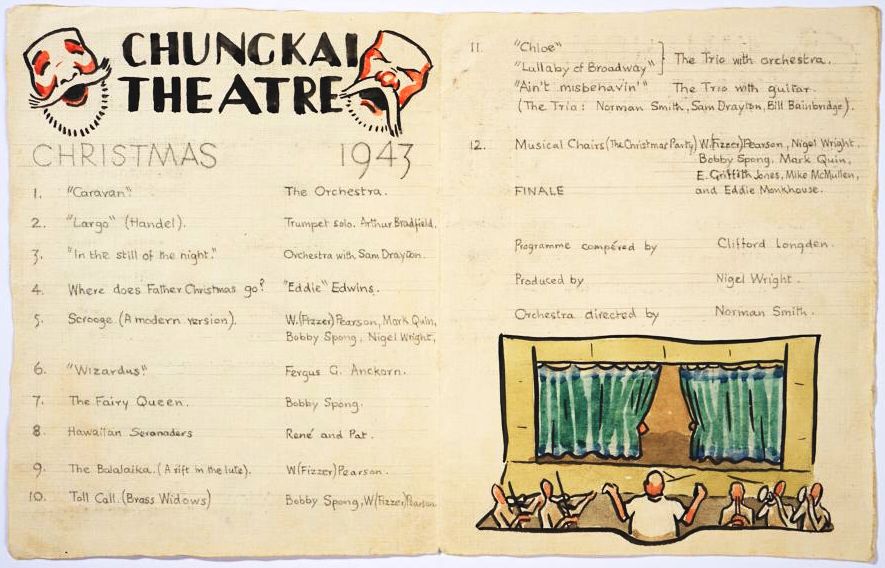 CHUNGKAI
THEATRE
CHRISTMAS 1943
1. "Caravan" The Orchestra.
2. "Largo" (Handel). Trumpet solo. Arthur Bradfield.
3. "In the still of the night." Orchestra with Sam Drayton.
4. Where does Father Christmas go? "Eddie" Edwins.
5. Scrooge (A modern version). W.(Fizzer)Pearson, Mark Quin,
Bobby Spong, Nigel Wright,
6. "Wizardus" Fergus G. Anckorn.
7. The Fairy Queen. Bobby Spong.
8. Hawaiian Seranaders René and Pat.
9. The Balalaika. (A rift in the lute). W(Fizzer)Pearson.
10. Toll Call. (Brass Widows) Bobby Spong, W(Fizzer)Pearson
11. "Chloe"
"Lullaby of Broadway" } The Trio with orchestra.
"Ain't misbehavin'" The Trio with guitar.
(The Trio: Norman Smith, Sam Drayton, Bill Bainbridge).
12. Musical Chairs (The Christmas Party) W.(Fizzer)Pearson, Nigel Wright,
Bobby Spong, Mark Quin,
E. Griffith Jones, Mike McMullen,
FINALE and Eddie Monkhouse.
Programme compéred by Clifford Longden.
Produced by Nigel Wright.
Orchestra directed by Norman Smith.